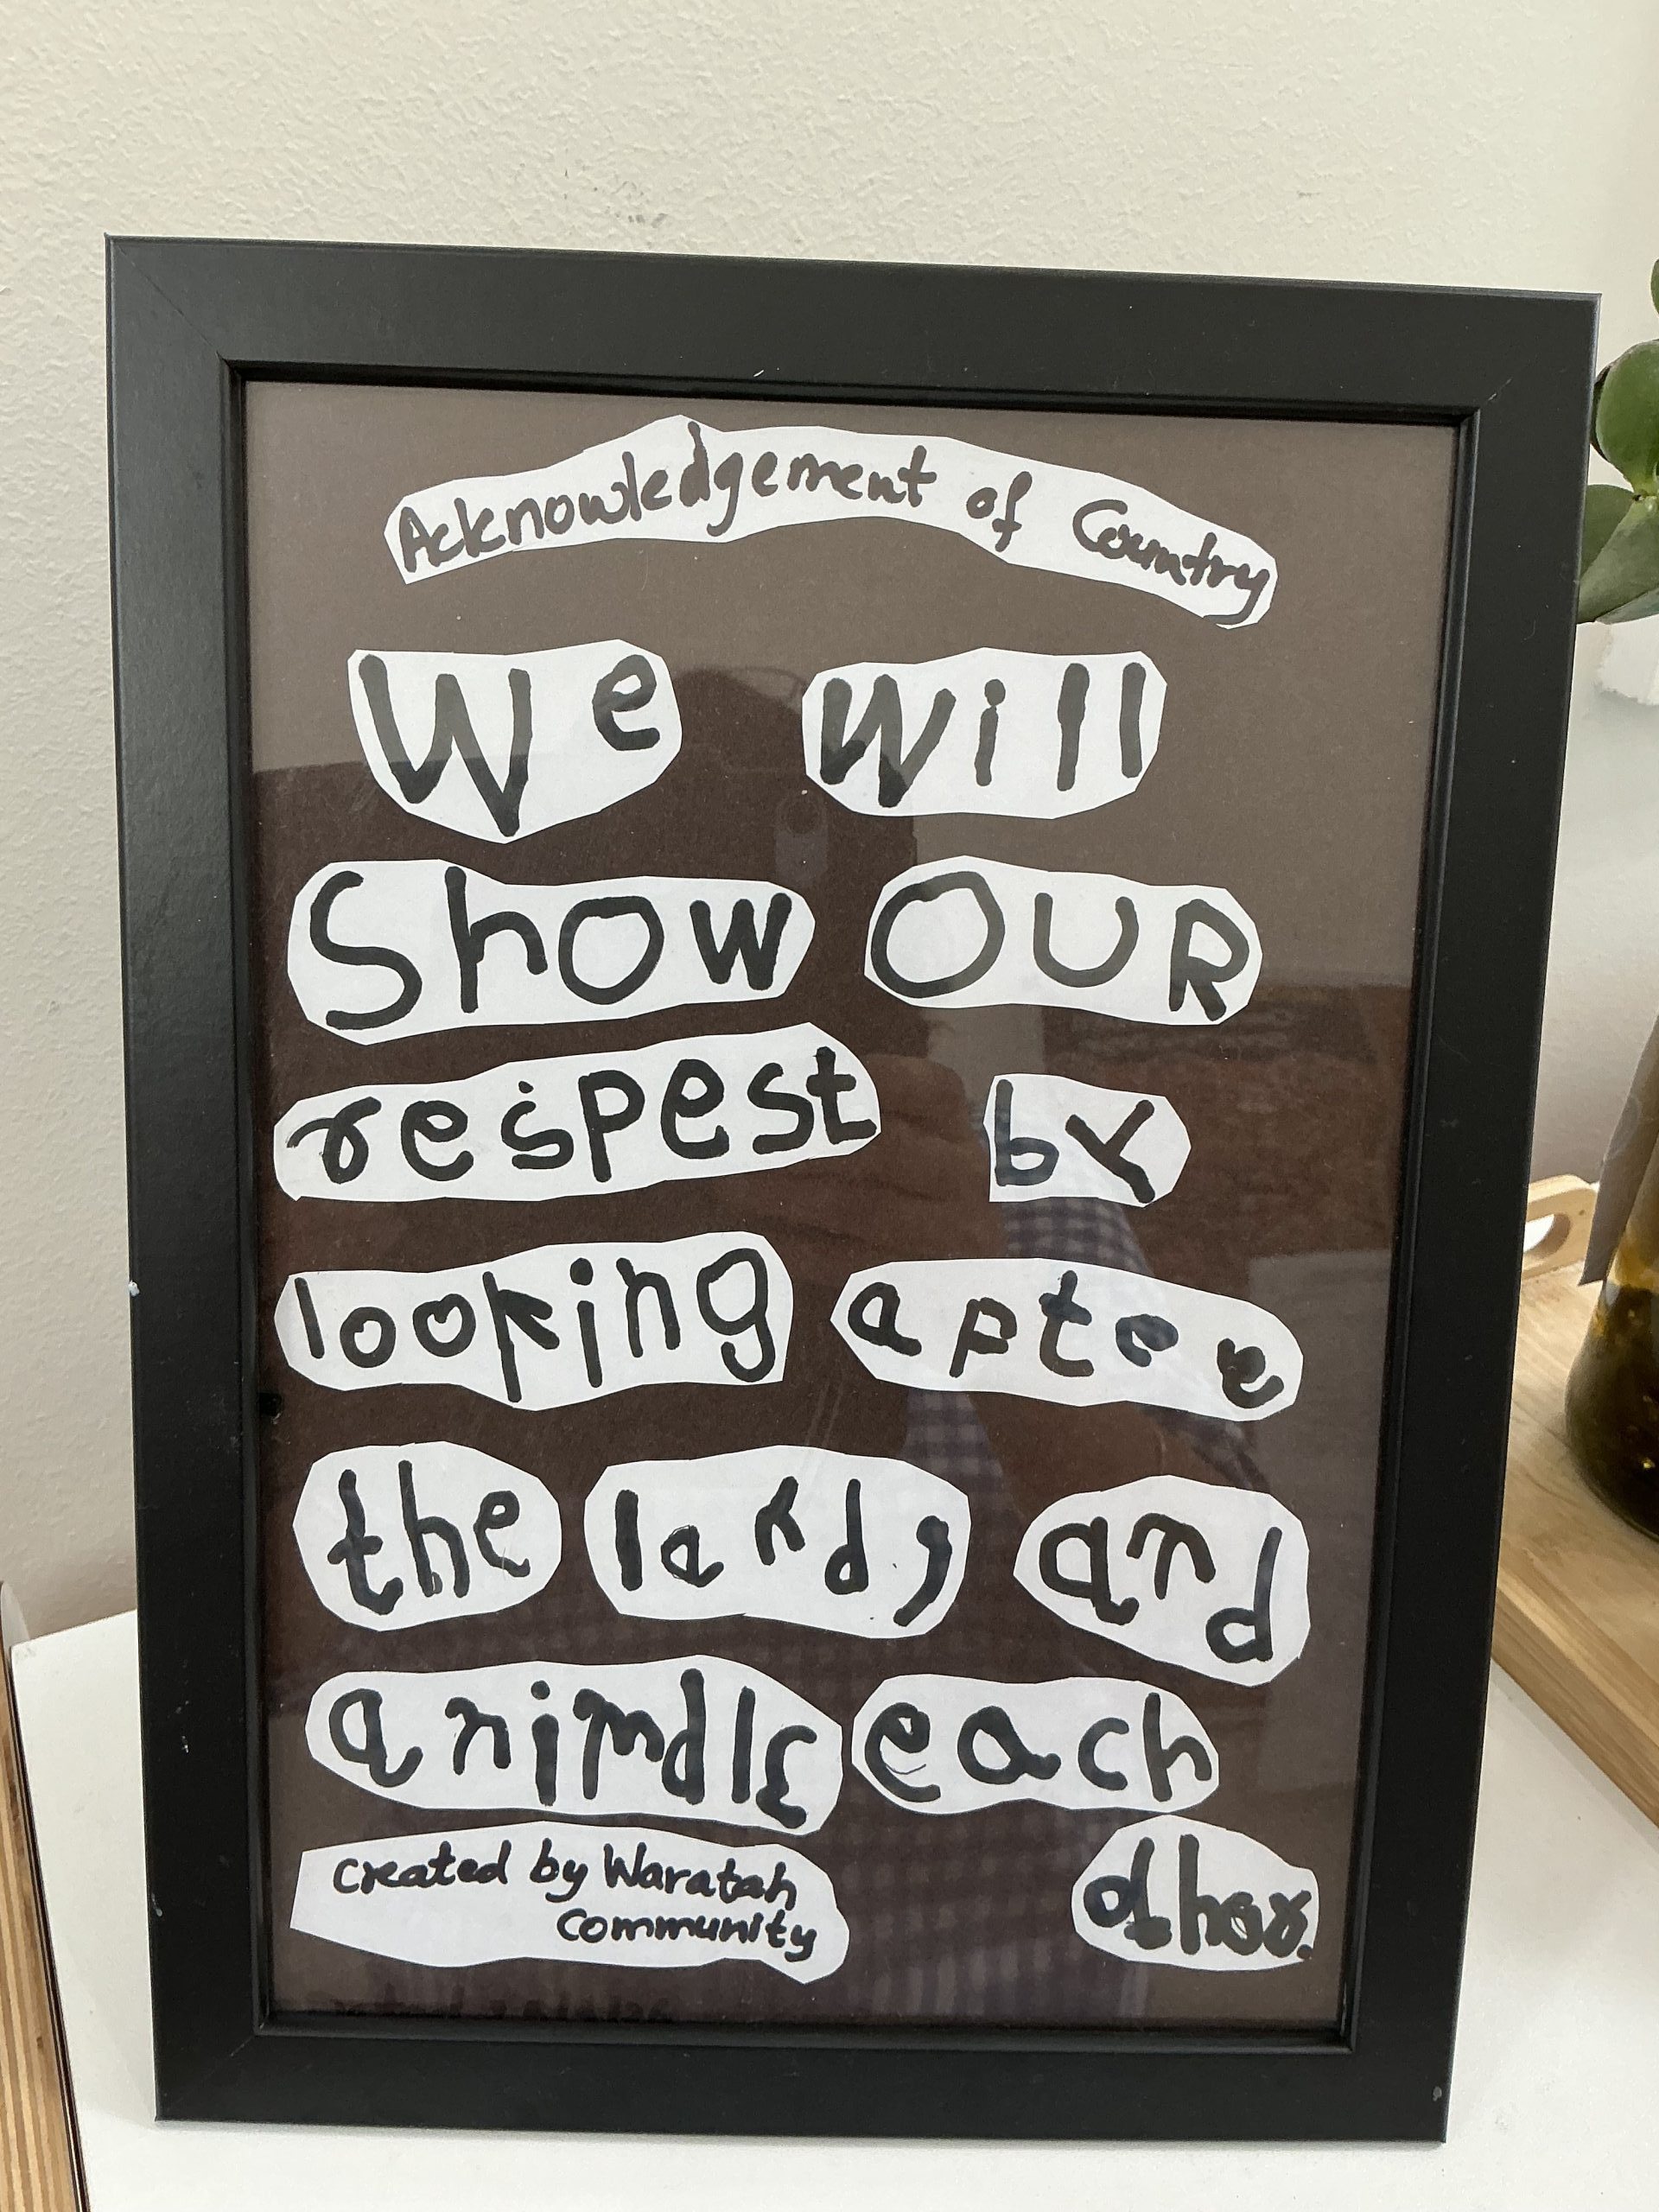 Acknowledgement of Country
We Will
Show OUR
respest by
looking aptee
the land, and
animals each
other.
Created by Waratah
community